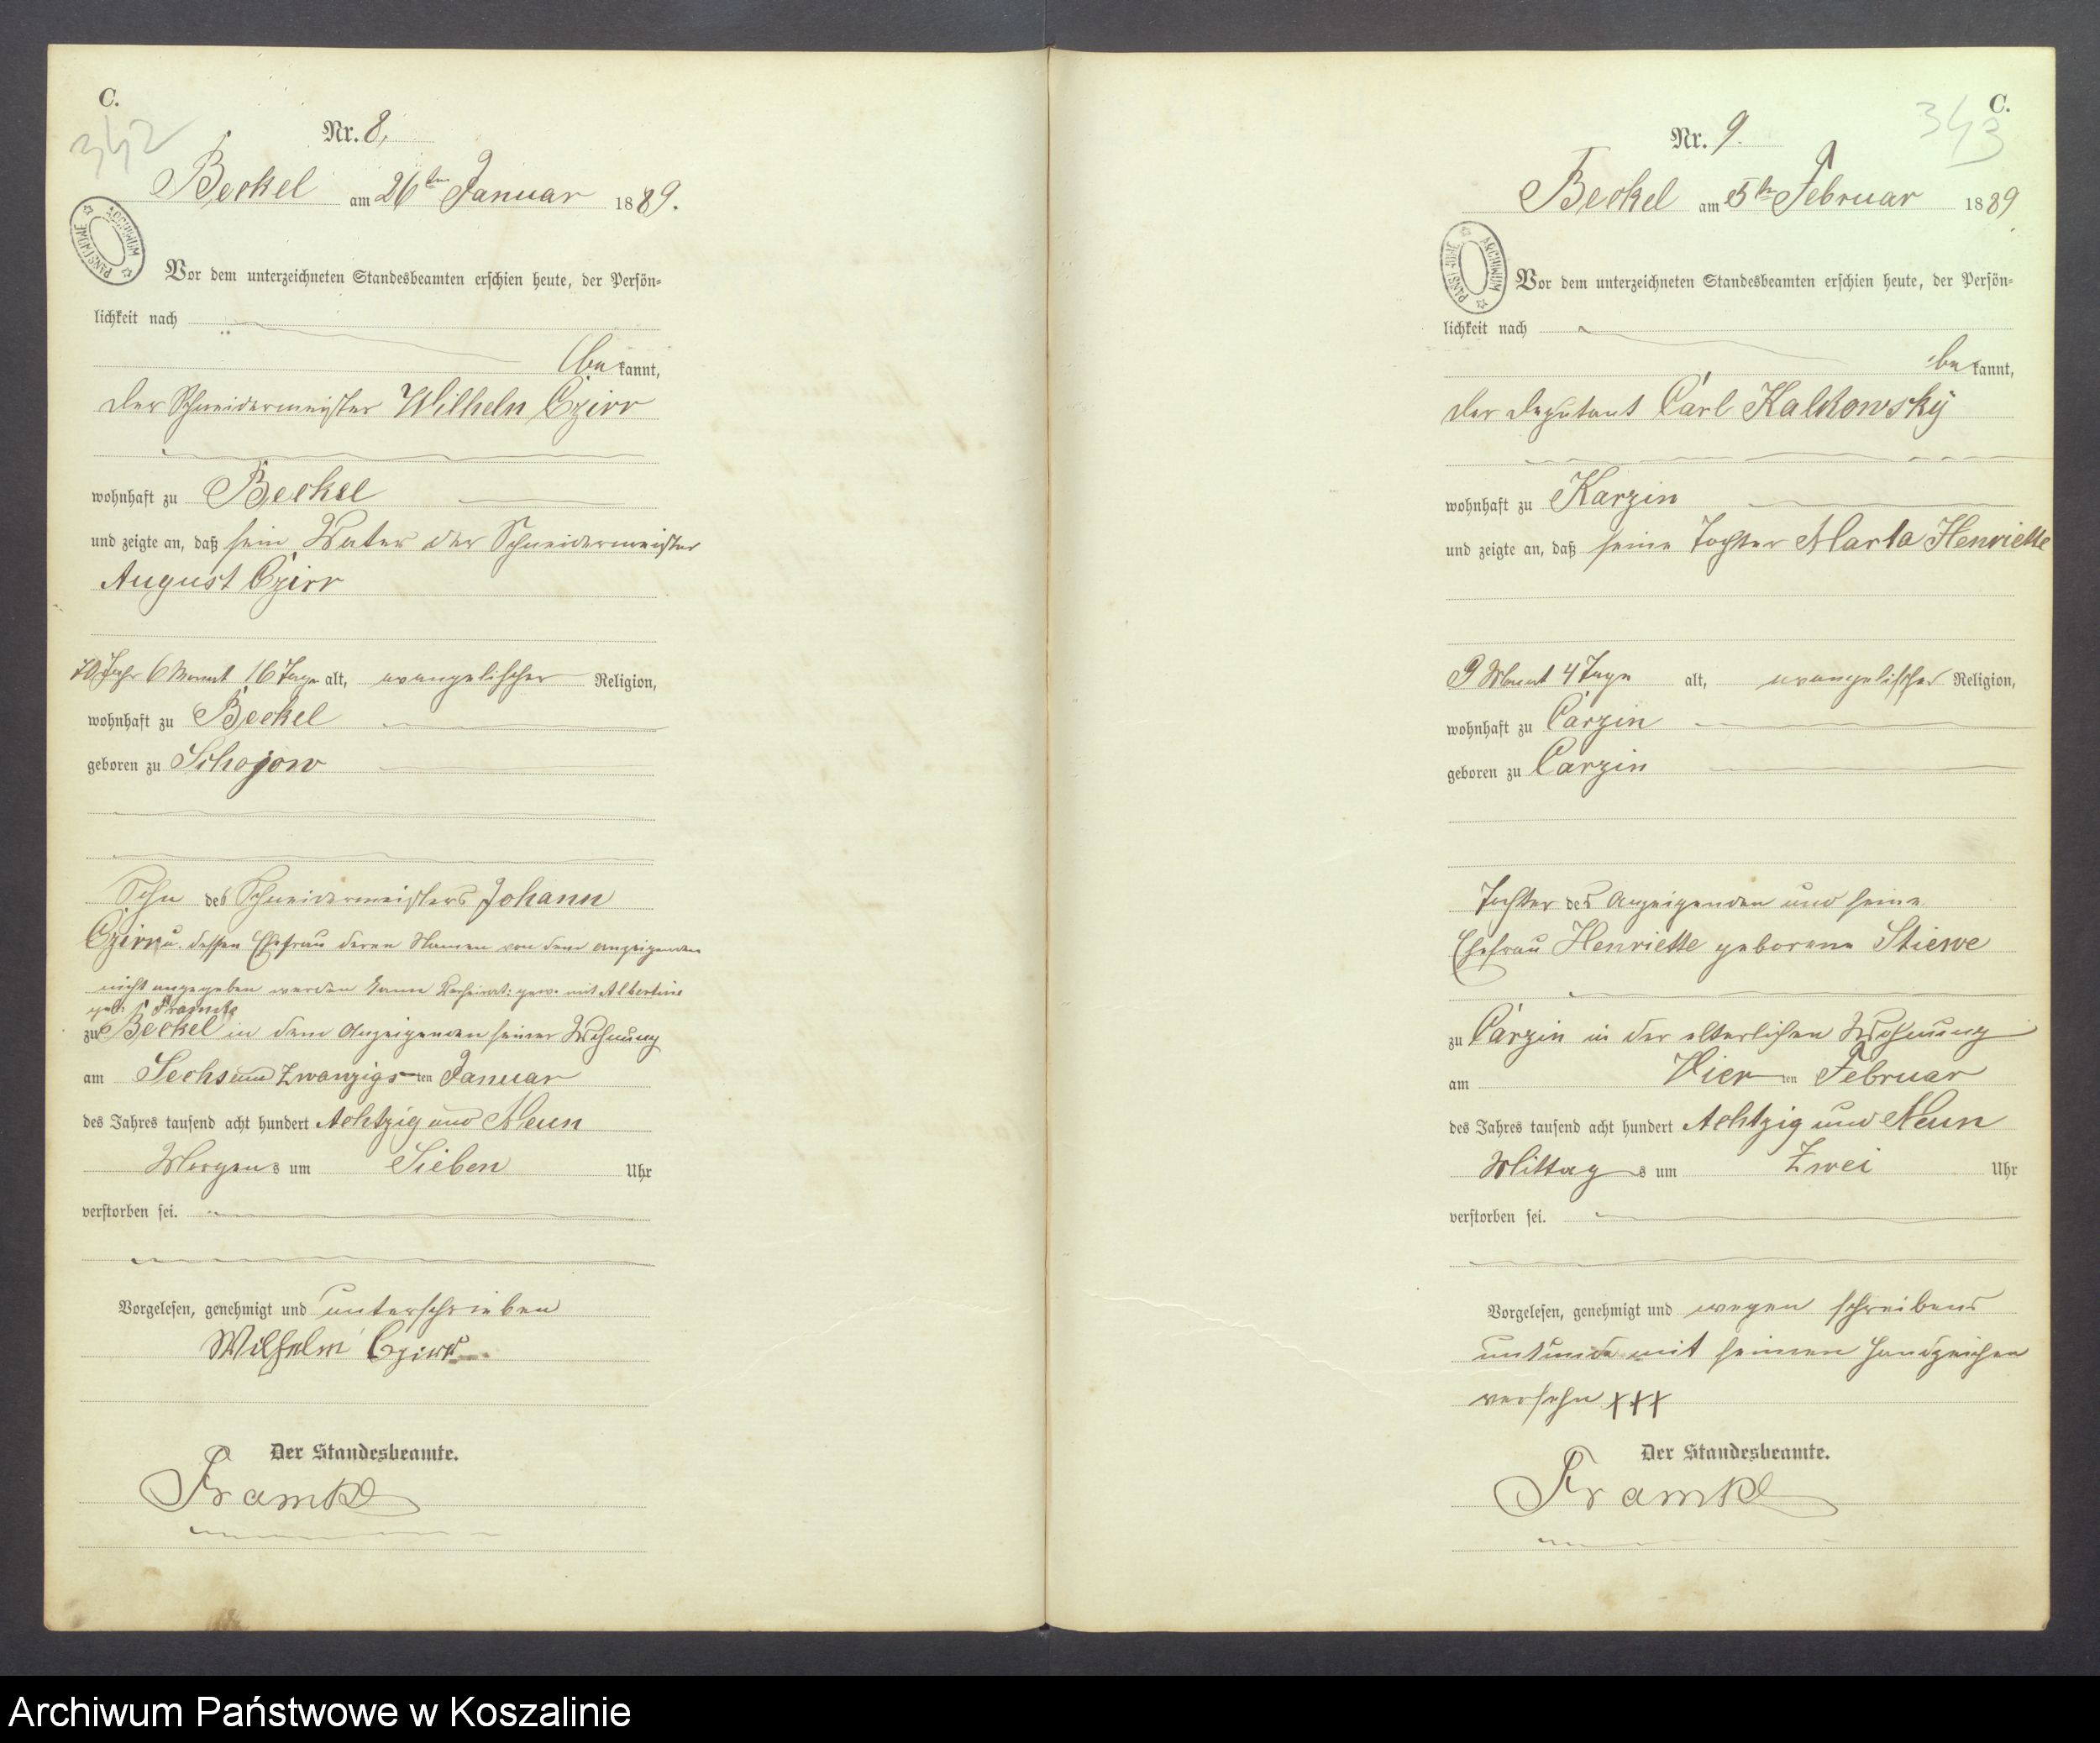 C.
342
Nr. 8,
Beckel am 26ten Januar 1889.
ARCHIWUM PAŃSTWOWE
Vor dem unterzeichneten Standesbeamten erschien heute, der Persön=
lichkeit nach
bekannt,
der Schneidermeister Wilheln Czirr
wohnhaft zu Beckel
und zeigte an, daß sein Vater der Schneidermeister
August Czirr
70 Jahr 6 Monat 16 Tage alt, evangelischer Religion,
wohnhaft zu Beckel
geboren zu Schojow
Sohn des Schneidermeisters Johann
Czirr u. dessen Ehefrau deren Namen von dem anzeigenden
nicht angegeben werden kann Verheirat: gew. mit Albertine
geb: Framke
zu Beckel in dem Anzeigenden seiner Wohnung
am Sechs und Zwanzigsten Januar
des Jahres tausend acht hundert Achtzig und Neun
Morgens um Sieben Uhr
verstorben sei.
Vorgelesen, genehmigt und unterschrieben
Wilhelm Czirr
Der Standesbeamte.
Framke
C.
343
Nr. 9.
Beckel am 5ten Februar 1889
ARCHIWUM PAŃSTWOWE
Vor dem unterzeichneten Standesbeamten erschien heute, der Persön=
lichkeit nach
bekannt,
der Deputant Carl Kalkowsky
wohnhaft zu Karzin
und zeigte an, daß seine Tochter Marta Henriette
9 Monat 4 Tage alt, evangelischer Religion,
wohnhaft zu Carzin
geboren zu Carzin
Tochter des Anzeigenden und seine
Ehefrau Henriette geborene Stiewe
zu Carzin in der elterlichen Wohnung
am Vierten Februar
des Jahres tausend acht hundert Achtzig und Neun
Mittags um Zwei Uhr
verstorben sei.
Vorgelesen, genehmigt und wegen schreibens
unkunde mit seinen Handzeichen
versehn +++
Der Standesbeamte.
Framke
Archiwum Państwowe w Koszalinie